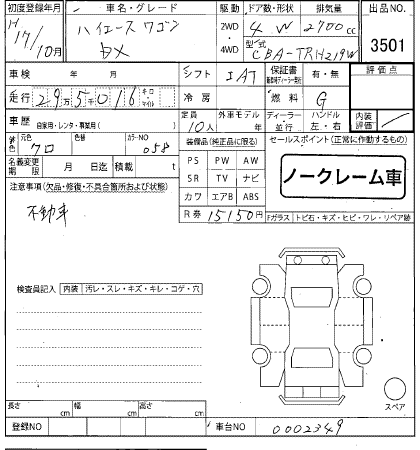 初度登録年月 車名・グレード 駆動 ドア数・形状 排気量 出品NO.
H17/10月 ハイエース ワゴン DX 2WD 4WD 4 W 2700cc 3501
型式 CBA-TRH219W
車検 年 月 シフト IAT 保証書 有・無 評価点
走行 295016 キロ マイル 冷房 燃料 G 内装評価
車歴 自家用・レンタ・事業用( ) 定員 10人 外車モデル 年 ディーラー・並行 ハンドル 左・右
元色 クロ 色替 カラーNO 058 装備品(純正品に限る) セールスポイント(正常に作動するもの)
名義変更期限 月 日迄 積載 t PS PW AW
SR TV ナビ
ノークレーム車
注意事項(欠品・修復・不具合箇所および状態) カワ エアB ABS
不動車 R券 15150円 Fガラス トビ石・キズ・ヒビ・ワレ・リペア跡
検査員記入 内装 汚レ・スレ・キズ・キレ・コゲ・穴
スペア
長さ cm 幅 cm 高さ cm
登録NO 車台NO 0002349